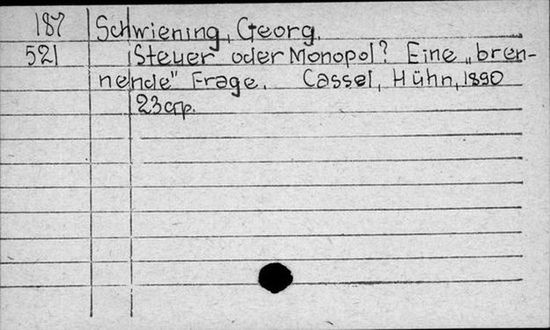 187 Schwiening, Georg.
521 Steuer oder Monopol? Eine „bren-
nende" Frage. Cassel, Hühn, 1890
23 стр.